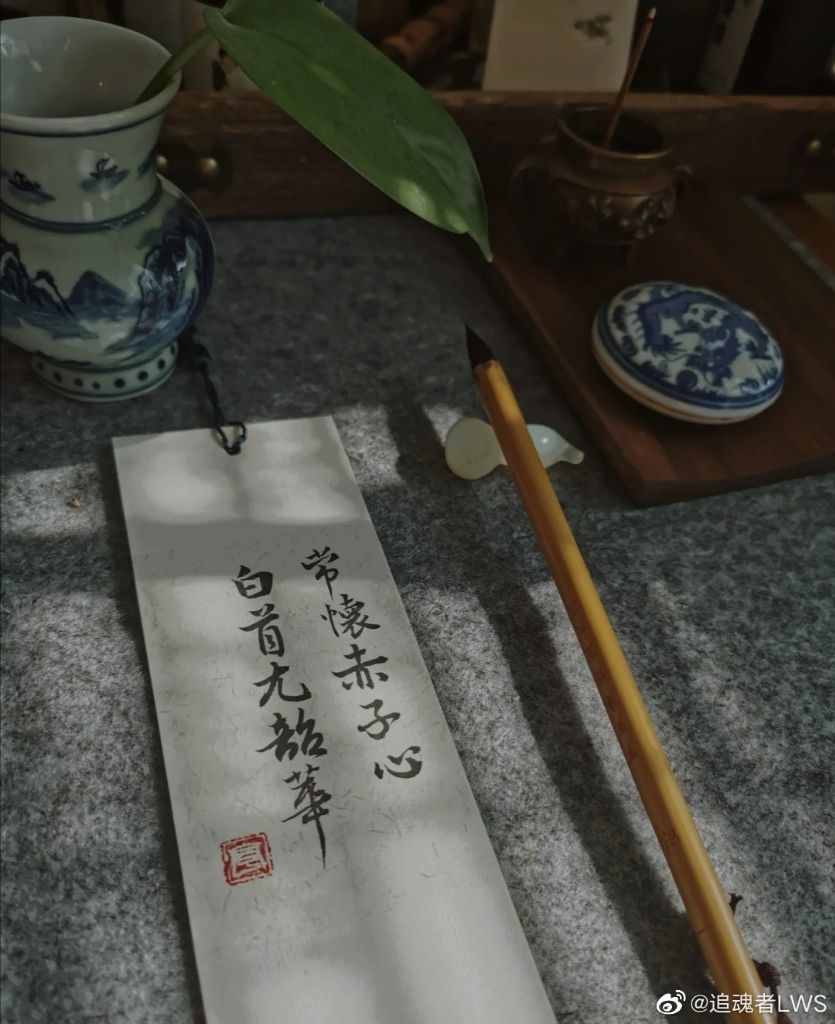 常懷赤子心
白首尤韶華
@追魂者LWS